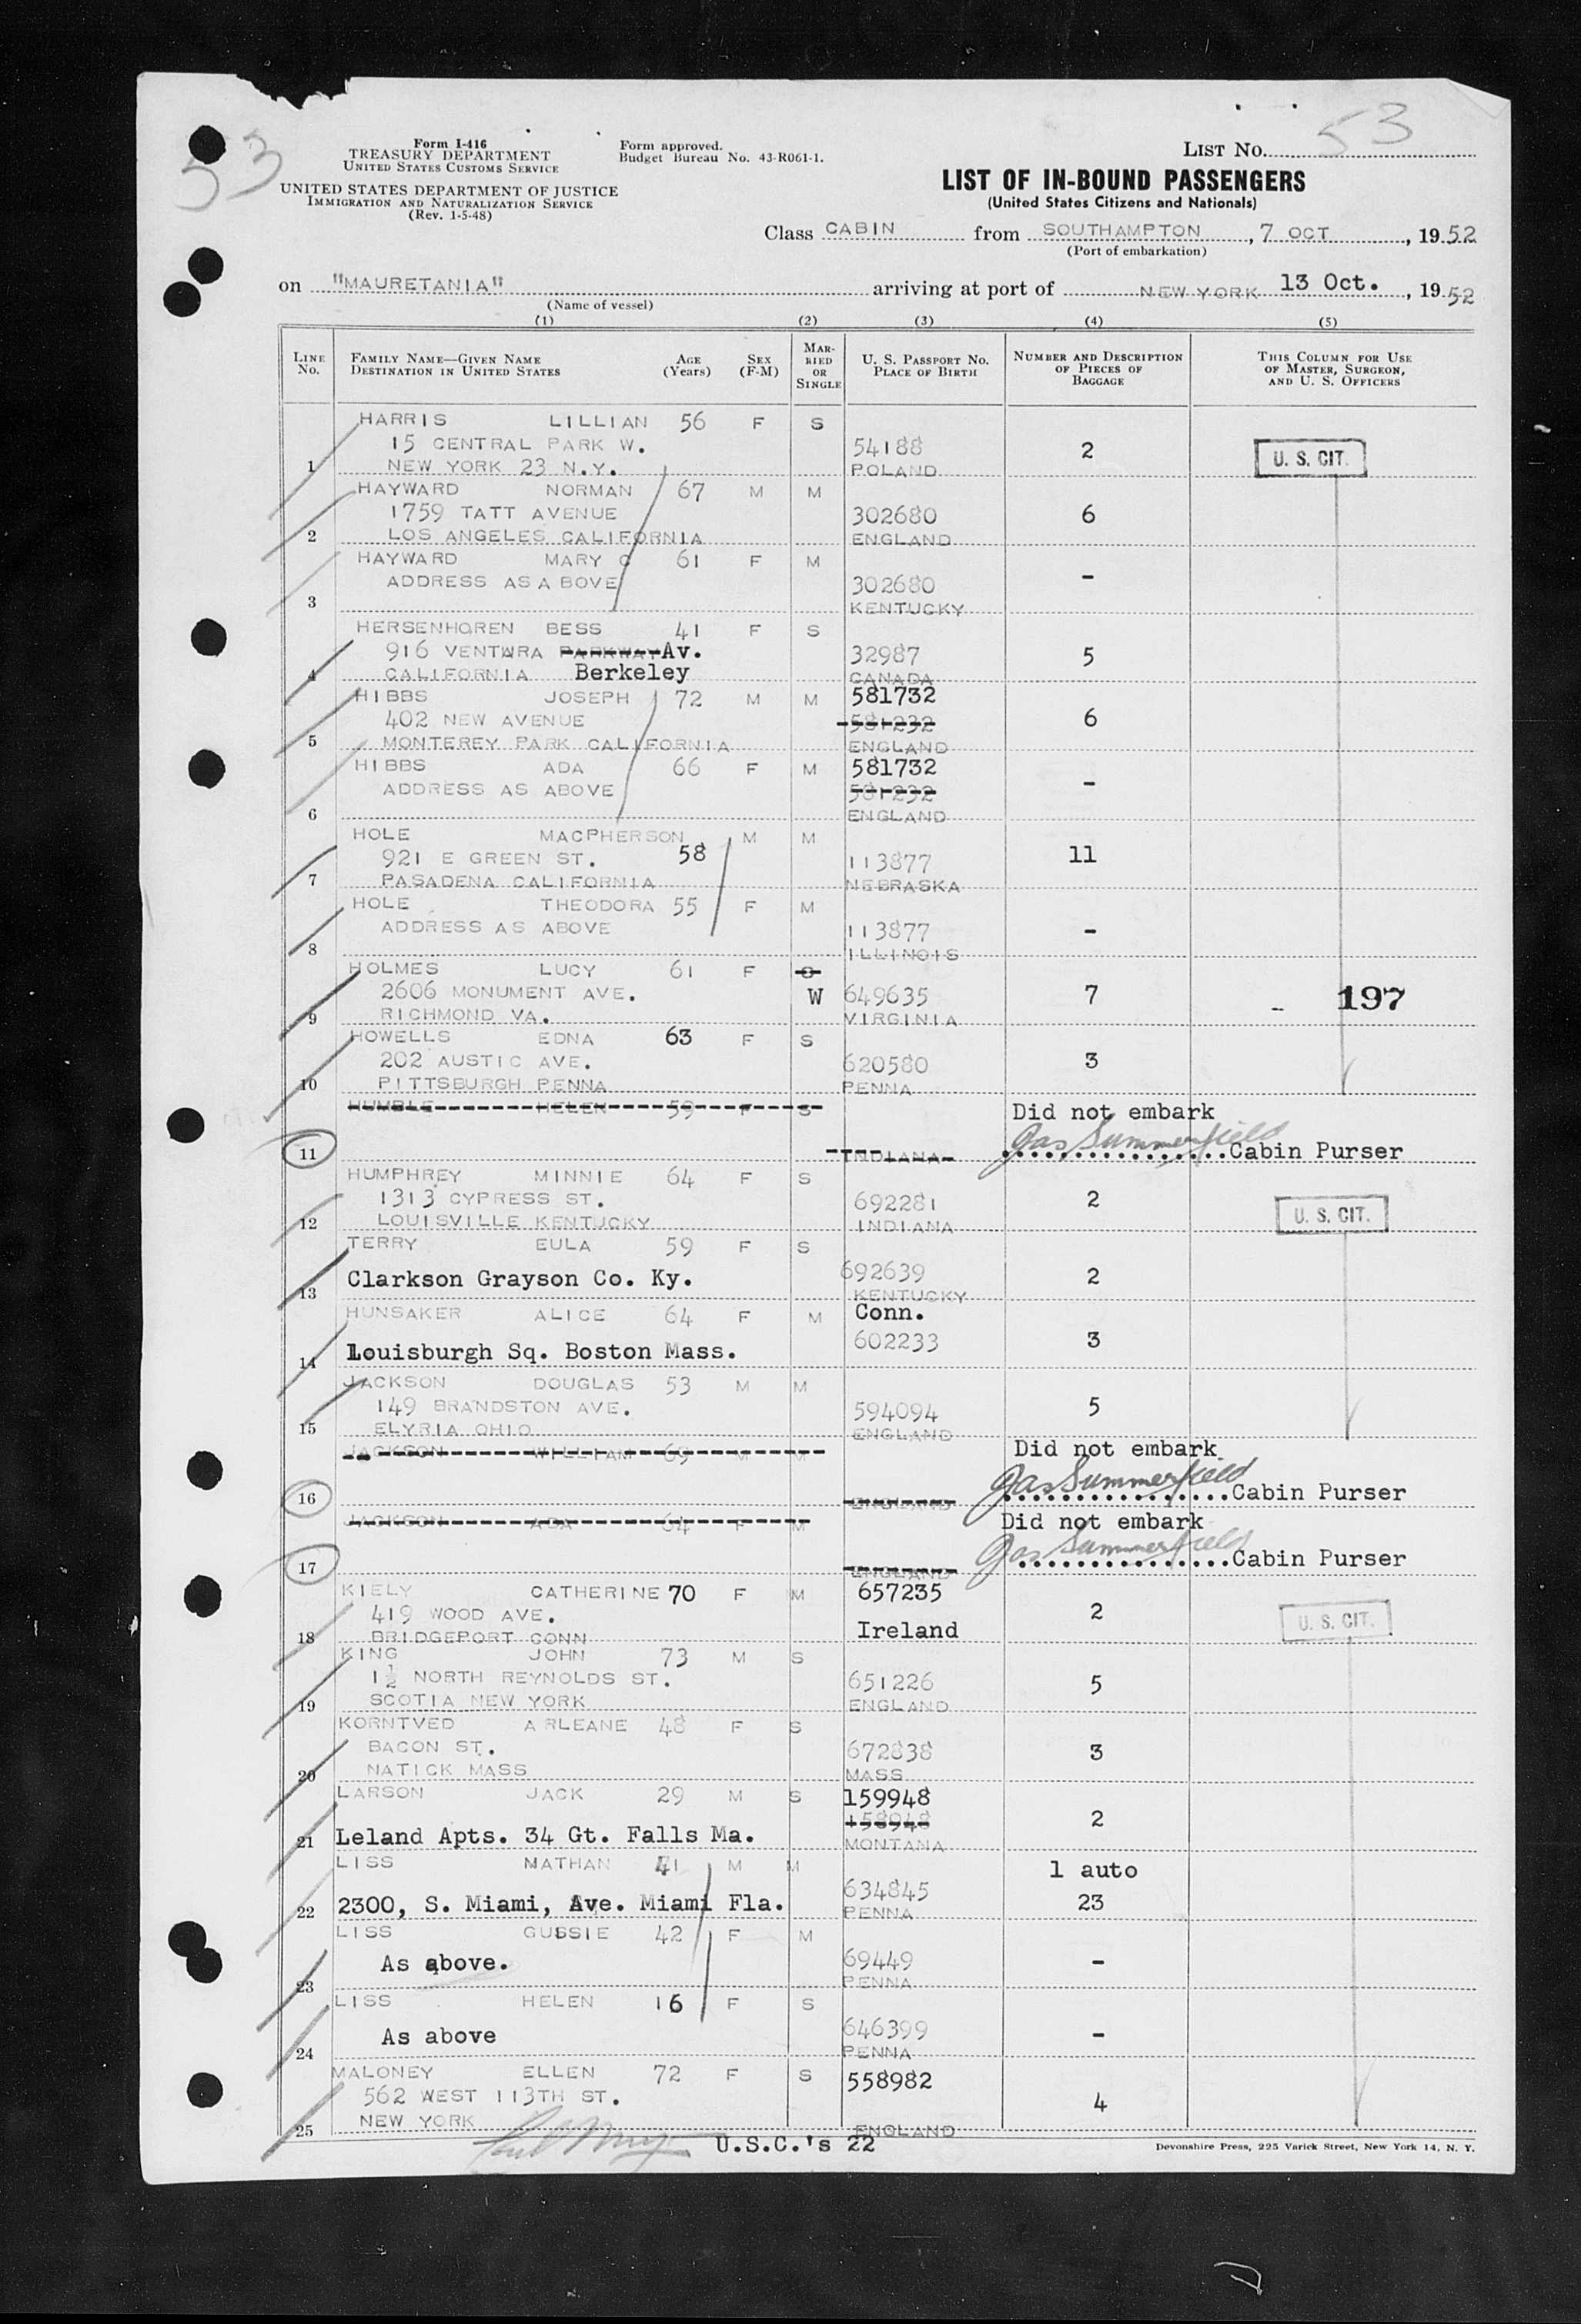 53
53
Form I-416
TREASURY DEPARTMENT
UNITED STATES CUSTOMS SERVICE
UNITED STATES DEPARTMENT OF JUSTICE
IMMIGRATION AND NATURALIZATION SERVICE
(Rev. 1-5-48)
Form approved.
Budget Bureau No. 43-R061-1.
LIST NO.
LIST OF IN-BOUND PASSENGERS
(United States Citizens and Nationals)
Class CABIN from SOUTHAMPTON, 7 OCT, 1952
(Port of embarkation)
on "MAURETANIA" arriving at port of NEW YORK 13 Oct., 1952
(Name of vessel)
(1) (2) (3) (4) (5)
LINE NO. FAMILY NAME—GIVEN NAME DESTINATION IN UNITED STATES AGE (Years) SEX (F-M) MARRIED OR SINGLE U. S. PASSPORT NO. PLACE OF BIRTH NUMBER AND DESCRIPTION OF PIECES OF BAGGAGE THIS COLUMN FOR USE OF MASTER, SURGEON, AND U. S. OFFICERS
HARRIS LILLIAN 56 F S
15 CENTRAL PARK W. 54188 2 U. S. CIT.
1 NEW YORK 23 N.Y. POLAND
HAYWARD NORMAN 67 M M
1759 TATT AVENUE 302680 6
2 LOS ANGELES CALIFORNIA ENGLAND
HAYWARD MARY C 61 F M
ADDRESS AS A BOVE 302680 -
3 KENTUCKY
HERSENHOREN BESS 41 F S
916 VENTWRA PARKWAY Av. 32987 5
4 CALIFORNIA Berkeley CANADA
HIBBS JOSEPH 72 M M 581732
402 NEW AVENUE 581232 6
5 MONTEREY PARK CALIFORNIA ENGLAND
HIBBS ADA 66 F M 581732
ADDRESS AS ABOVE 581232 -
6 ENGLAND
HOLE MACPHERSON M M
921 E GREEN ST. 58 113877 11
7 PASADENA CALIFORNIA NEBRASKA
HOLE THEODORA 55 F M
ADDRESS AS ABOVE 113877 -
8 ILLINOIS
HOLMES LUCY 61 F S
2606 MONUMENT AVE. W 649635 7 - 197
9 RICHMOND VA. VIRGINIA
HOWELLS EDNA 63 F S
202 AUSTIC AVE. 620580 3
10 PITTSBURGH PENNA PENNA
HUMBLE HELEN 59 F S Did not embark
11 INDIANA Gas Summerfield Cabin Purser
HUMPHREY MINNIE 64 F S
1313 CYPRESS ST. 692281 2 U. S. CIT.
12 LOUISVILLE KENTUCKY INDIANA
TERRY EULA 59 F S
13 Clarkson Grayson Co. Ky. 692639 2
KENTUCKY
HUNSAKER ALICE 64 F M Conn.
14 Louisburgh Sq. Boston Mass. 602233 3
JACKSON DOUGLAS 53 M M
149 BRANDSTON AVE. 594094 5
15 ELYRIA OHIO ENGLAND
JACKSON WILLIAM 69 M M Did not embark
16 ENGLAND Gas Summerfield Cabin Purser
JACKSON ADA 64 F M Did not embark
17 ENGLAND Gas Summerfield Cabin Purser
KIELY CATHERINE 70 F M 657235
419 WOOD AVE. 2 U. S. CIT.
18 BRIDGEPORT CONN Ireland
KING JOHN 73 M S
1½ NORTH REYNOLDS ST. 651226 5
19 SCOTIA NEW YORK ENGLAND
KORNTVED A RLEANE 48 F S
BACON ST. 672838 3
20 NATICK MASS MASS
LARSON JACK 29 M S 159948
158948 2
21 Leland Apts. 34 Gt. Falls Ma. MONTANA
LISS NATHAN 41 M M 1 auto
22 2300, S. Miami, Ave. Miami Fla. 634845 23
PENNA
LISS GUSSIE 42 F M
As above. 69449 -
23 PENNA
LISS HELEN 16 F S
As above 646399 -
24 PENNA
MALONEY ELLEN 72 F S 558982
562 WEST 113TH ST. 4
25 NEW YORK ENGLAND
U.S.C.'s 22
Devonshire Press, 225 Varick Street, New York 14, N. Y.